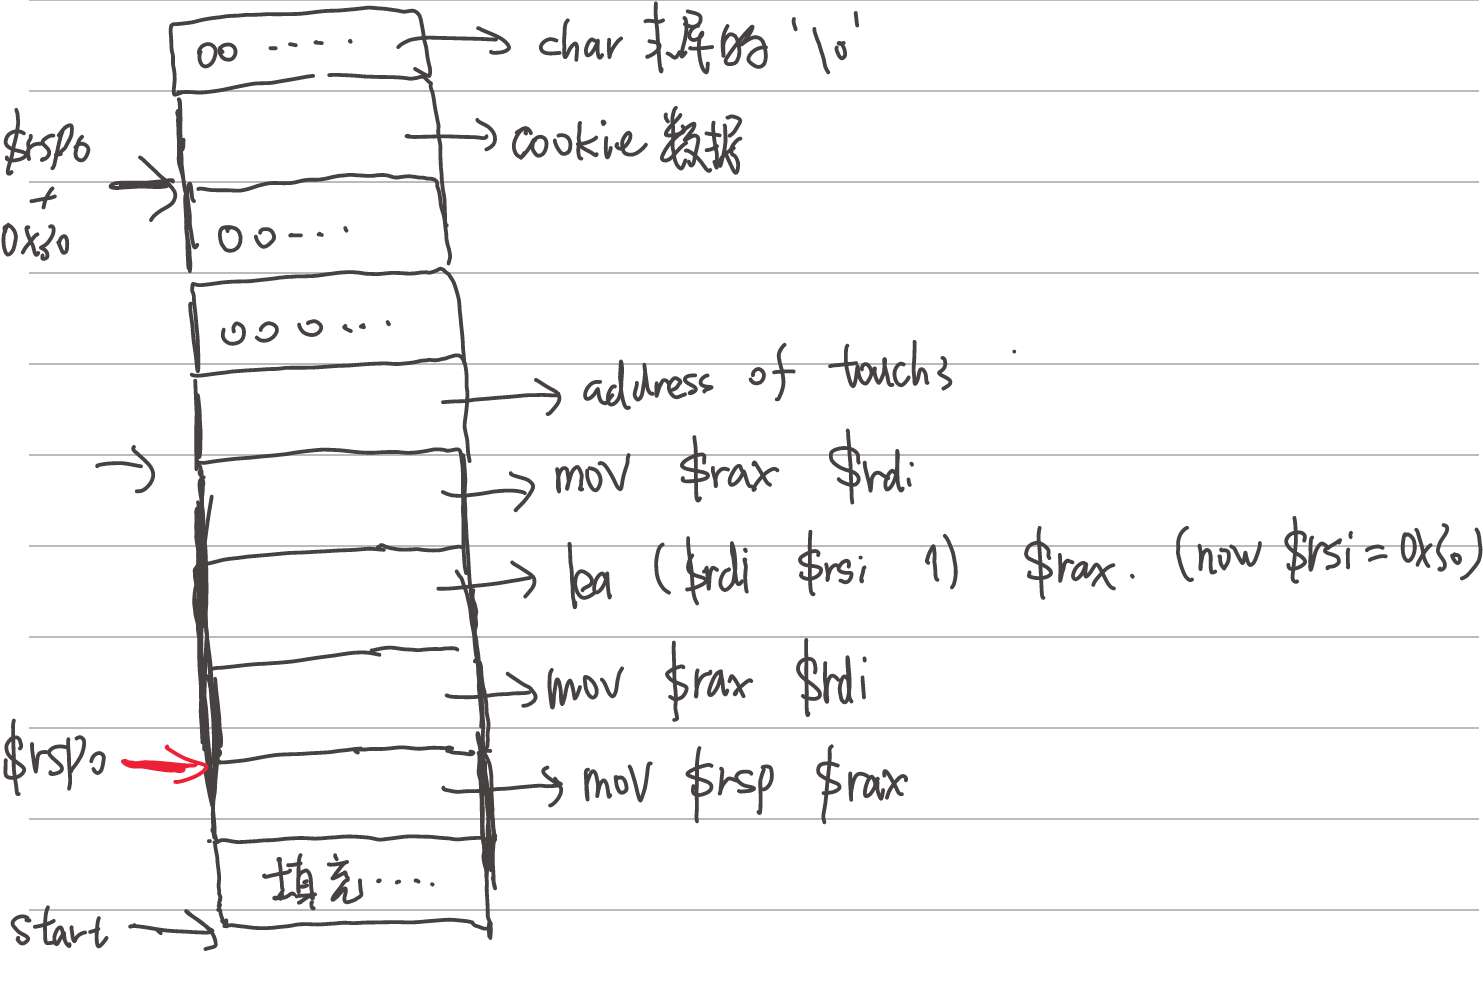 00 ····
char 末尾的 '\0'
cookie 数据
$rsp0
+
0x30
00 ···
000 ···
address of touch3
mov $rax $rdi
lea ($rdi $rsi 1) $rax. (now $rsi = 0x30)
mov $rax $rdi
$rsp0
mov $rsp $rax
填充 ····
start